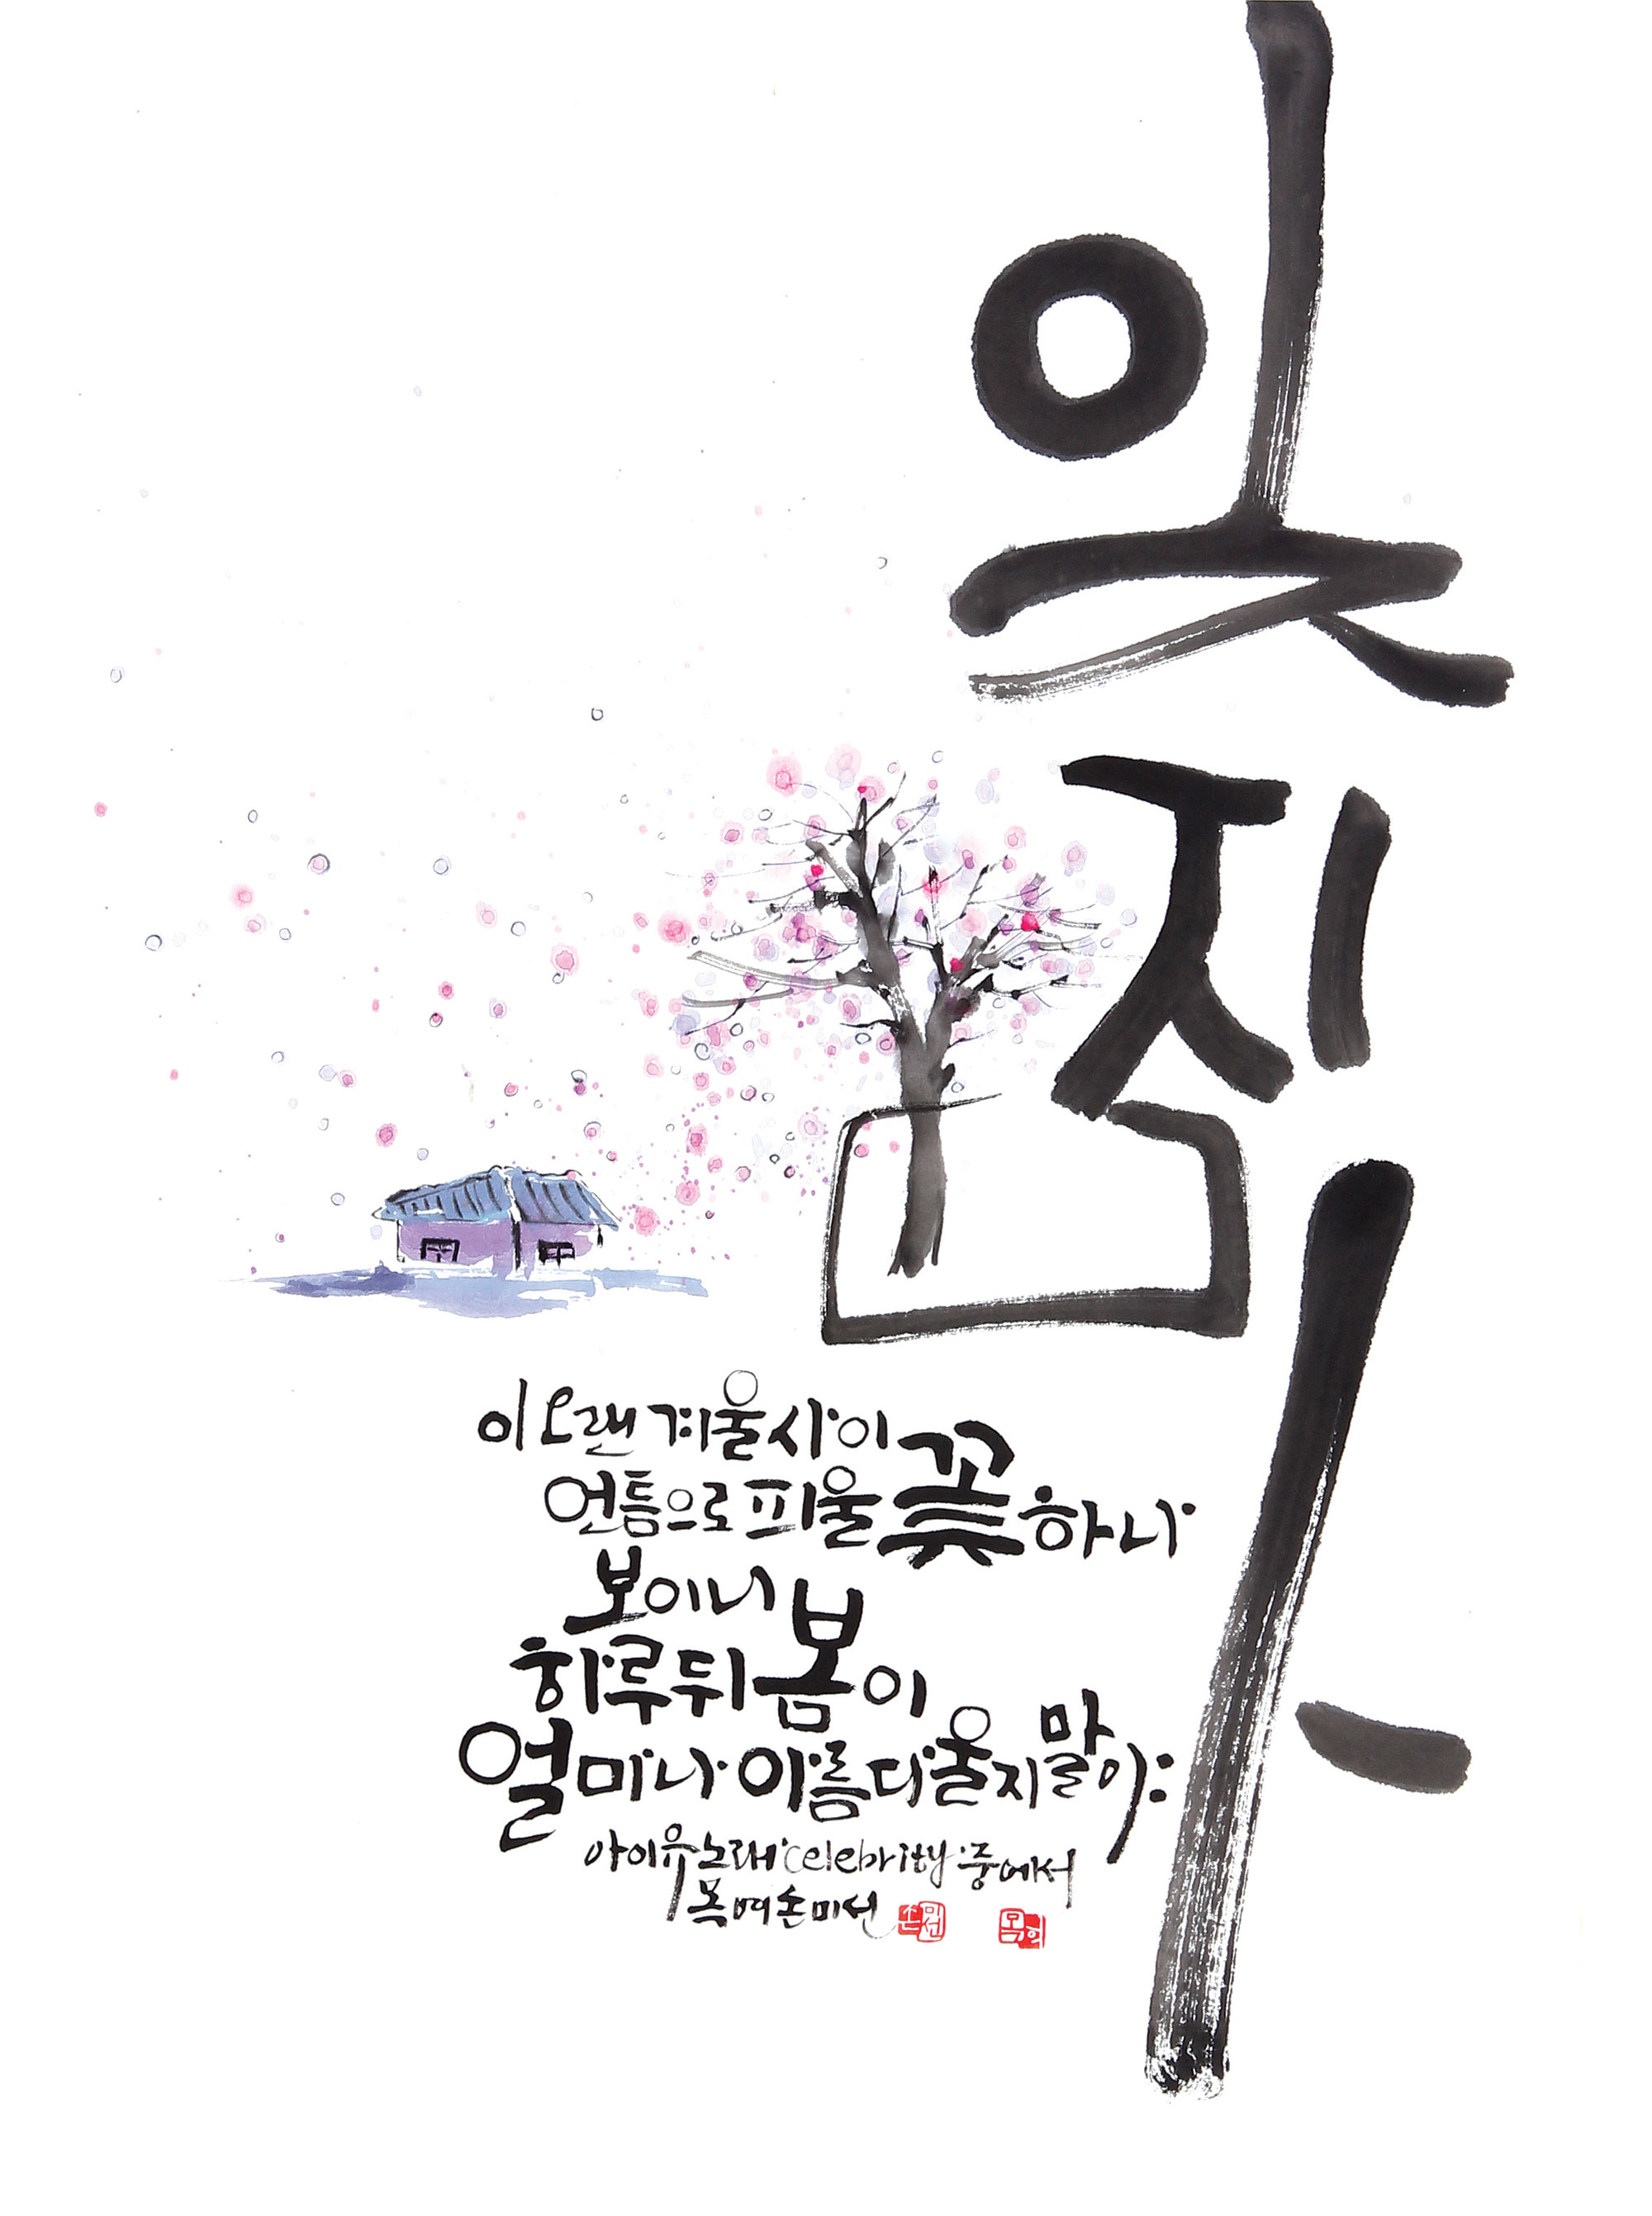 잊지마
이 오랜 겨울 사이
언 틈으로 피울 꽃 하나
보이니
하루 뒤 봄이
얼마나 아름다울지 말야
아이유 노래 'celebrity' 중에서
손미선
손미선